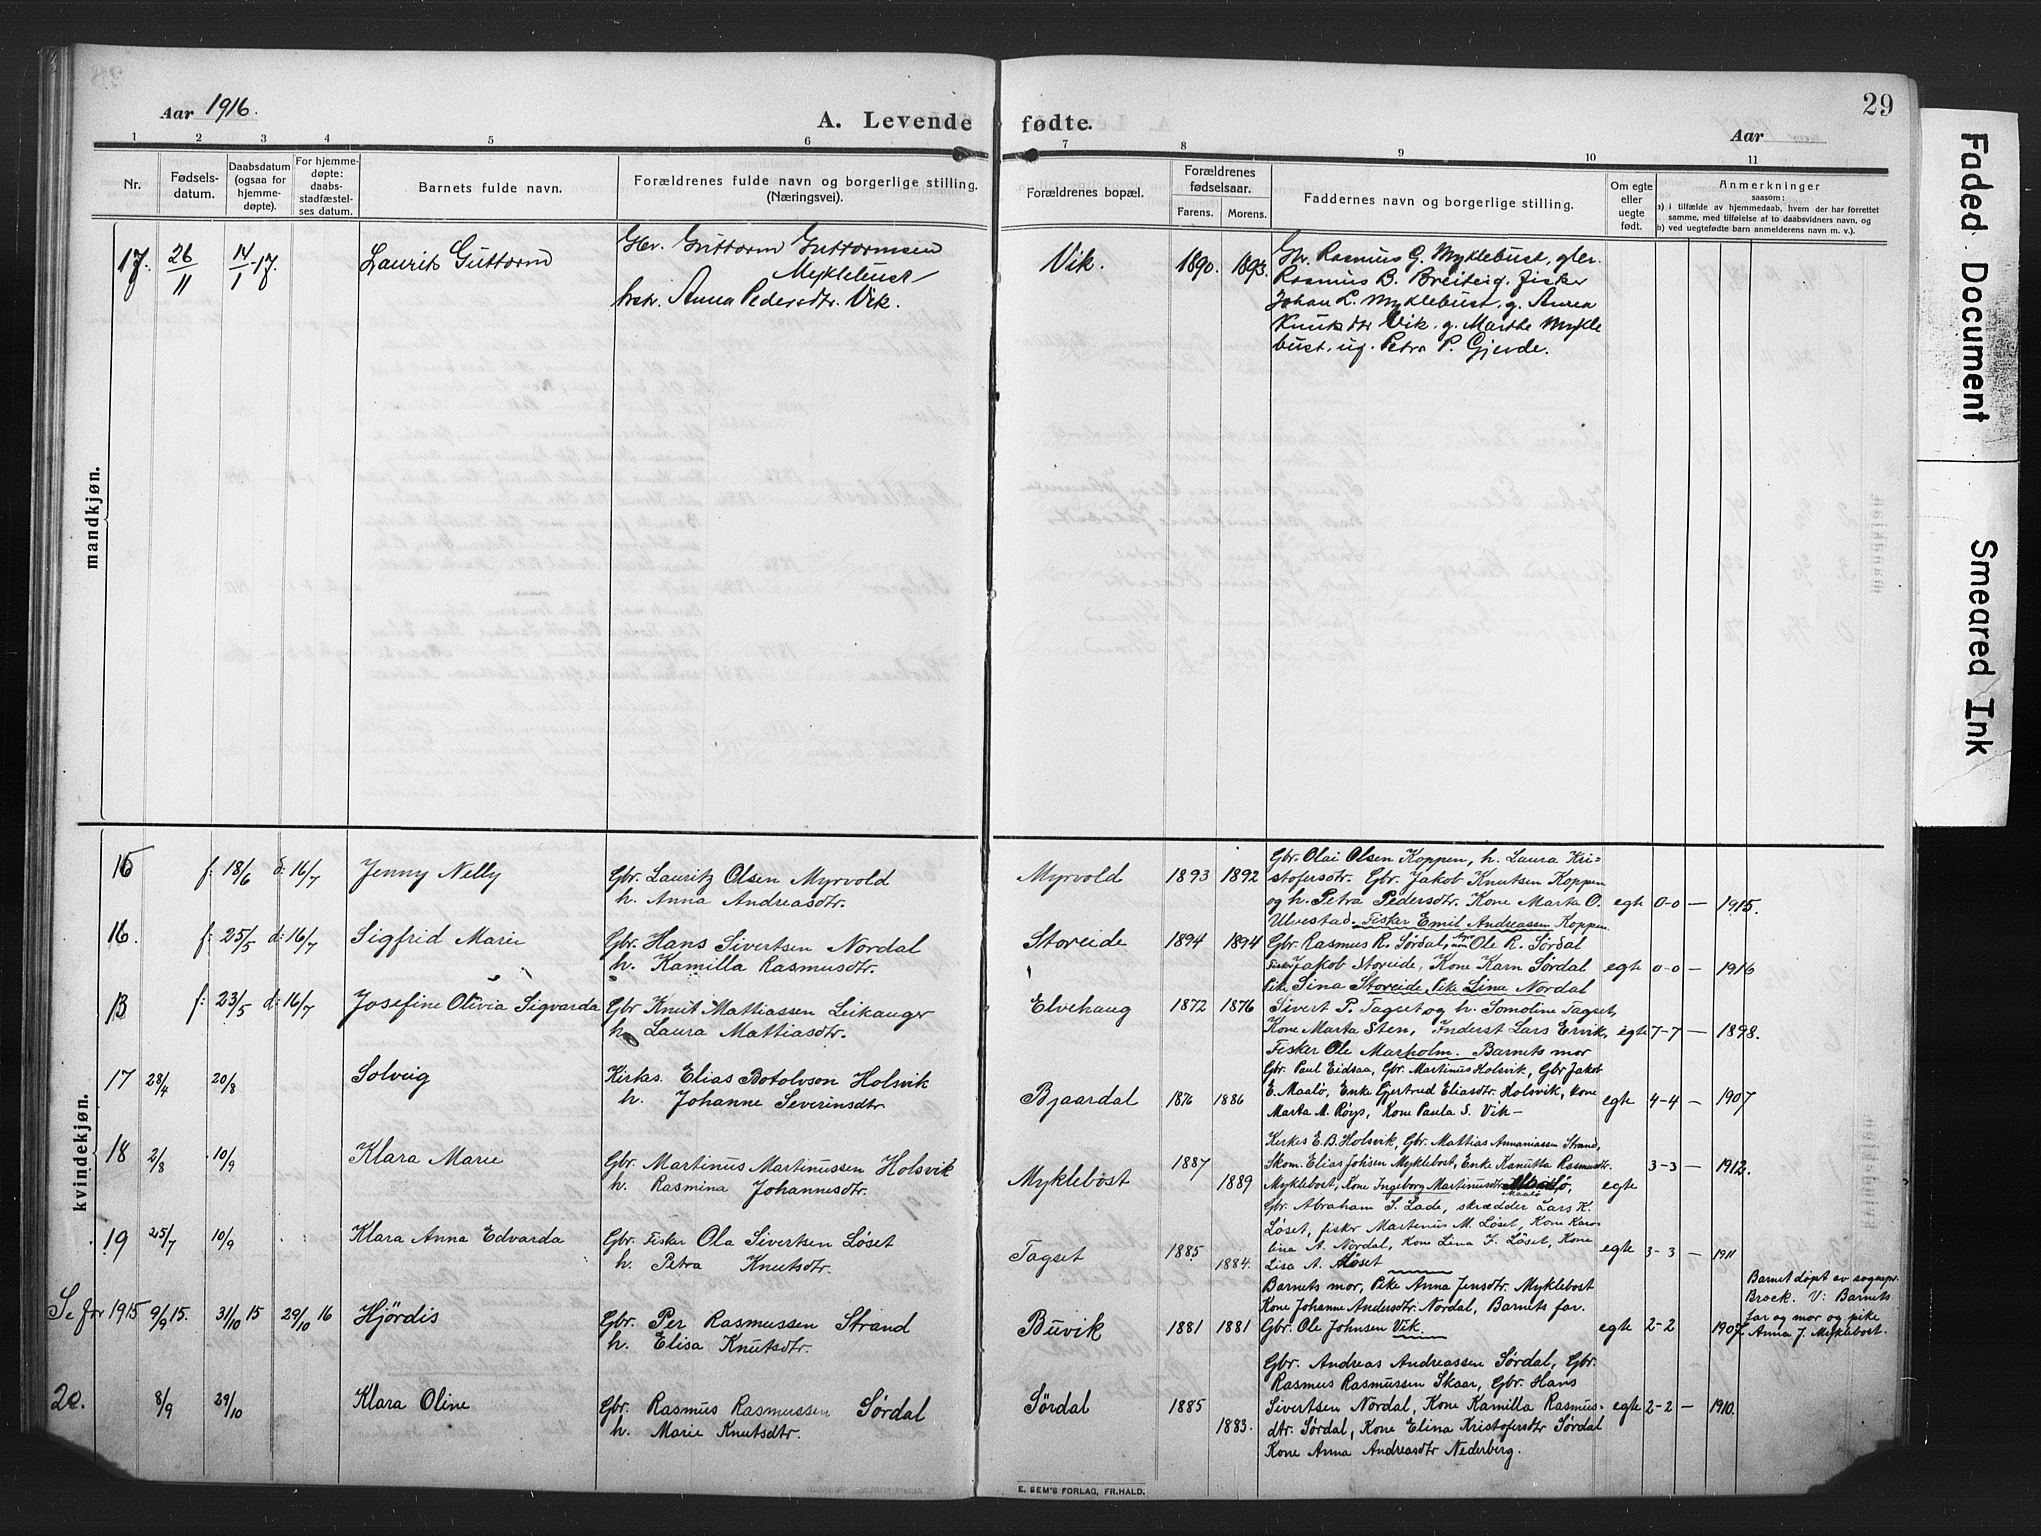 Aar 1916.
A. Levende fødte.
Aar
29
1 2 3 4 5 6 7 8 9 10 11
Nr.
Fødsels-
datum.
Daabsdatum
(ogsaa for
hjemme-
døpte).
For hjemme-
døpte:
daabs-
stadfæstel-
ses datum.
Barnets fulde navn.
Forældrenes fulde navn og borgerlige stilling.
(Næringsvei).
Forældrenes bopæl.
Forældrenes
fødselsaar.
Farens. Morens.
Faddernes navn og borgerlige stilling.
Om egte
eller
uegte
født.
Anmerkninger
saasom:
a) i tilfælde av hjemmedaab, hvem der har forrettet
samme, med tilføielse af to daabsvidners navn, og
b) ved uegtefødte barn anmelderens navn m. v.).
mandkjøn.
17. 26/11 14/1-17. Laurits Guttorm
Gbr. Guttorm Guttormsen
Myklebust
hstr. Anna Pedersdtr. Vik.
Vik. 1890. 1893.
Gbr. Rasmus G. Myklebust, gbr.
Rasmus B. Breiteig. Fisker
Johan L. Myklebust, g. Anna
Knutsdtr Vik. g. Marthe Mykle
bust, ug. Petra P. Gjerde.
kvindekjøn.
15 f: 18/6 d: 16/7 Jenny Nelly
Gbr. Lauritz Olsen Myrvold
h. Anna Andreasdtr.
Myrvold 1893 1892
Gbr. Olai Olsen Koppen, h. Laura Kri=
stofersdtr. Gbr. Jakob Knutsen Koppen
og h. Petra Pedersdtr. Kone Marta O.
Ulvestad. Fisker Emil Andreassen Koppen.
egte 0-0 — 1915.
16. f: 25/5 d: 16/7 Sigfrid Marie
Gbr. Hans Sivertsen Nordal
h. Kamilla Rasmusdtr.
Storeide 1894 1894
Gbr. Rasmus R. Sørdal, Ole R. Sørdal
Fisker Jakob Storeide, Kone Karn Sørdal
Pike Sina Storeide, Pike Lina Nordal
egte 0-0 — 1916
13 f: 23/5 d: 16/7 Josefine Olivia Sigvarda
Gbr Knut Mattiassen Leikanger
h. Laura Mattiasdtr.
Elvehaug 1872 1876
Sivert P. Tagset og h. Somoline Tagset,
Kone Marta Sten, Inderst Lars Ervik,
Fisker Ole Marholm. Barnets mor
egte 7-7 — 1898.
17 28/4 20/8 Solveig
Kirkes. Elias Botolvson Holsvik
h. Johanne Severinsdtr.
Bjaardal 1876 1886
Gbr. Paul Eidsaa, Gbr. Martinus Holsvik, Gbr Jakob
E. Maalø, Enke Gjertrud Eliasdtr. Holsvik, Kone
Marta M. Røys, Kone Paula S. Vik—
egte 4-4 — 1907
18 2/8 10/9 Klara Marie
Gbr. Martinus Martinussen Holsvik
h. Rasmina Johannesdtr.
Myklebost 1887 1889
Kirkes E. B. Holsvik, Gbr. Mattias Annaniassen Strand,
Skom. Elias Johsen Myklebost, Enke Kanutta Rasmusdtr.
Myklebost, Kone Ingeborg Martinusdtr. Maalø,
egte 3-3 — 1912.
19 25/7 10/9 Klara Anna Edvarda
Gbr. Fisker Ola Sivertsen Løset
h. Petra Knutsdtr.
Tagset 1885 1884.
Gbr. Abraham S. Lade, skrædder Lars K.
Løset, fisker Martinus M. Løset, Kone Karo-
lina A. Nordal, Kone Lina J. Løset, Kone
Lisa A. Løset
egte 3-3 — 1911
Se for 1915 9/9 15. 31/10 15 29/10 16 Hjørdis
Gbr. Per Rasmussen Strand
h. Elisa Knutsdtr.
Buvik 1881 1881
Barnets mor, Pike Anna Jensdtr. Myklebost
Kone Johanne Andersdtr. Nordal, Barnets far.
Gbr. Ole Johnsen Vik.
egte 2-2 1907
Barnet døpt av sognepr.
Brock. V: Barnets
far og mor og pike
Anna J. Myklebost.
20. 8/9 29/10 Klara Oline
Gbr. Rasmus Rasmussen Sørdal
h. Marie Knutsdtr.
Sørdal 1885 1883.
Gbr. Andreas Andreassen Sørdal, Gbr.
Rasmus Rasmussen Skaar, Gbr. Hans
Sivertsen Nordal, Kone Kamilla Rasmus-
dtr. Sørdal, Kone Elina Kristofersdtr Sørdal
Kone Anna Andreasdtr Nederberg.
egte 2-2 — 1910.
E. SEM'S FORLAG, FR.HALD.
Faded Document
Smeared Ink